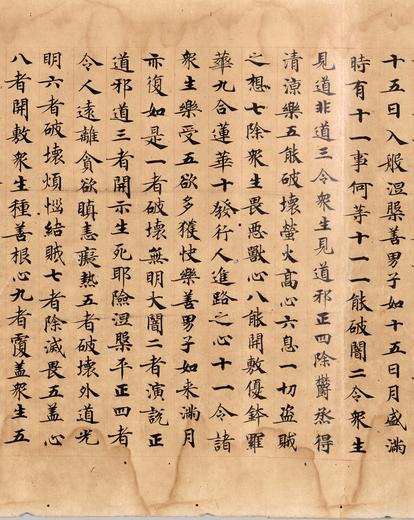 十五日入般涅槃善男子如十五日月盛滿
時有十一事何等十一一能破闇二令衆生
見道非道三令衆生見道邪正四除欝烝得
清涼樂五能破壞螢火高心六息一切盗賊
之想七除衆生畏惡獸心八能開敷優鉢羅
華九合蓮華十發行人進路之心十一令諸
衆生樂受五欲多獲快樂善男子如来滿月
亦復如是一者破壞無明大闇二者演說正
道邪道三者開示生死耶險涅槃平正四者
令人遠離貪欲瞋恚癡熱五者破壞外道光
明六者破壞煩惱結賊七者除滅畏五蓋心
八者開敷衆生種善根心九者覆蓋衆生五